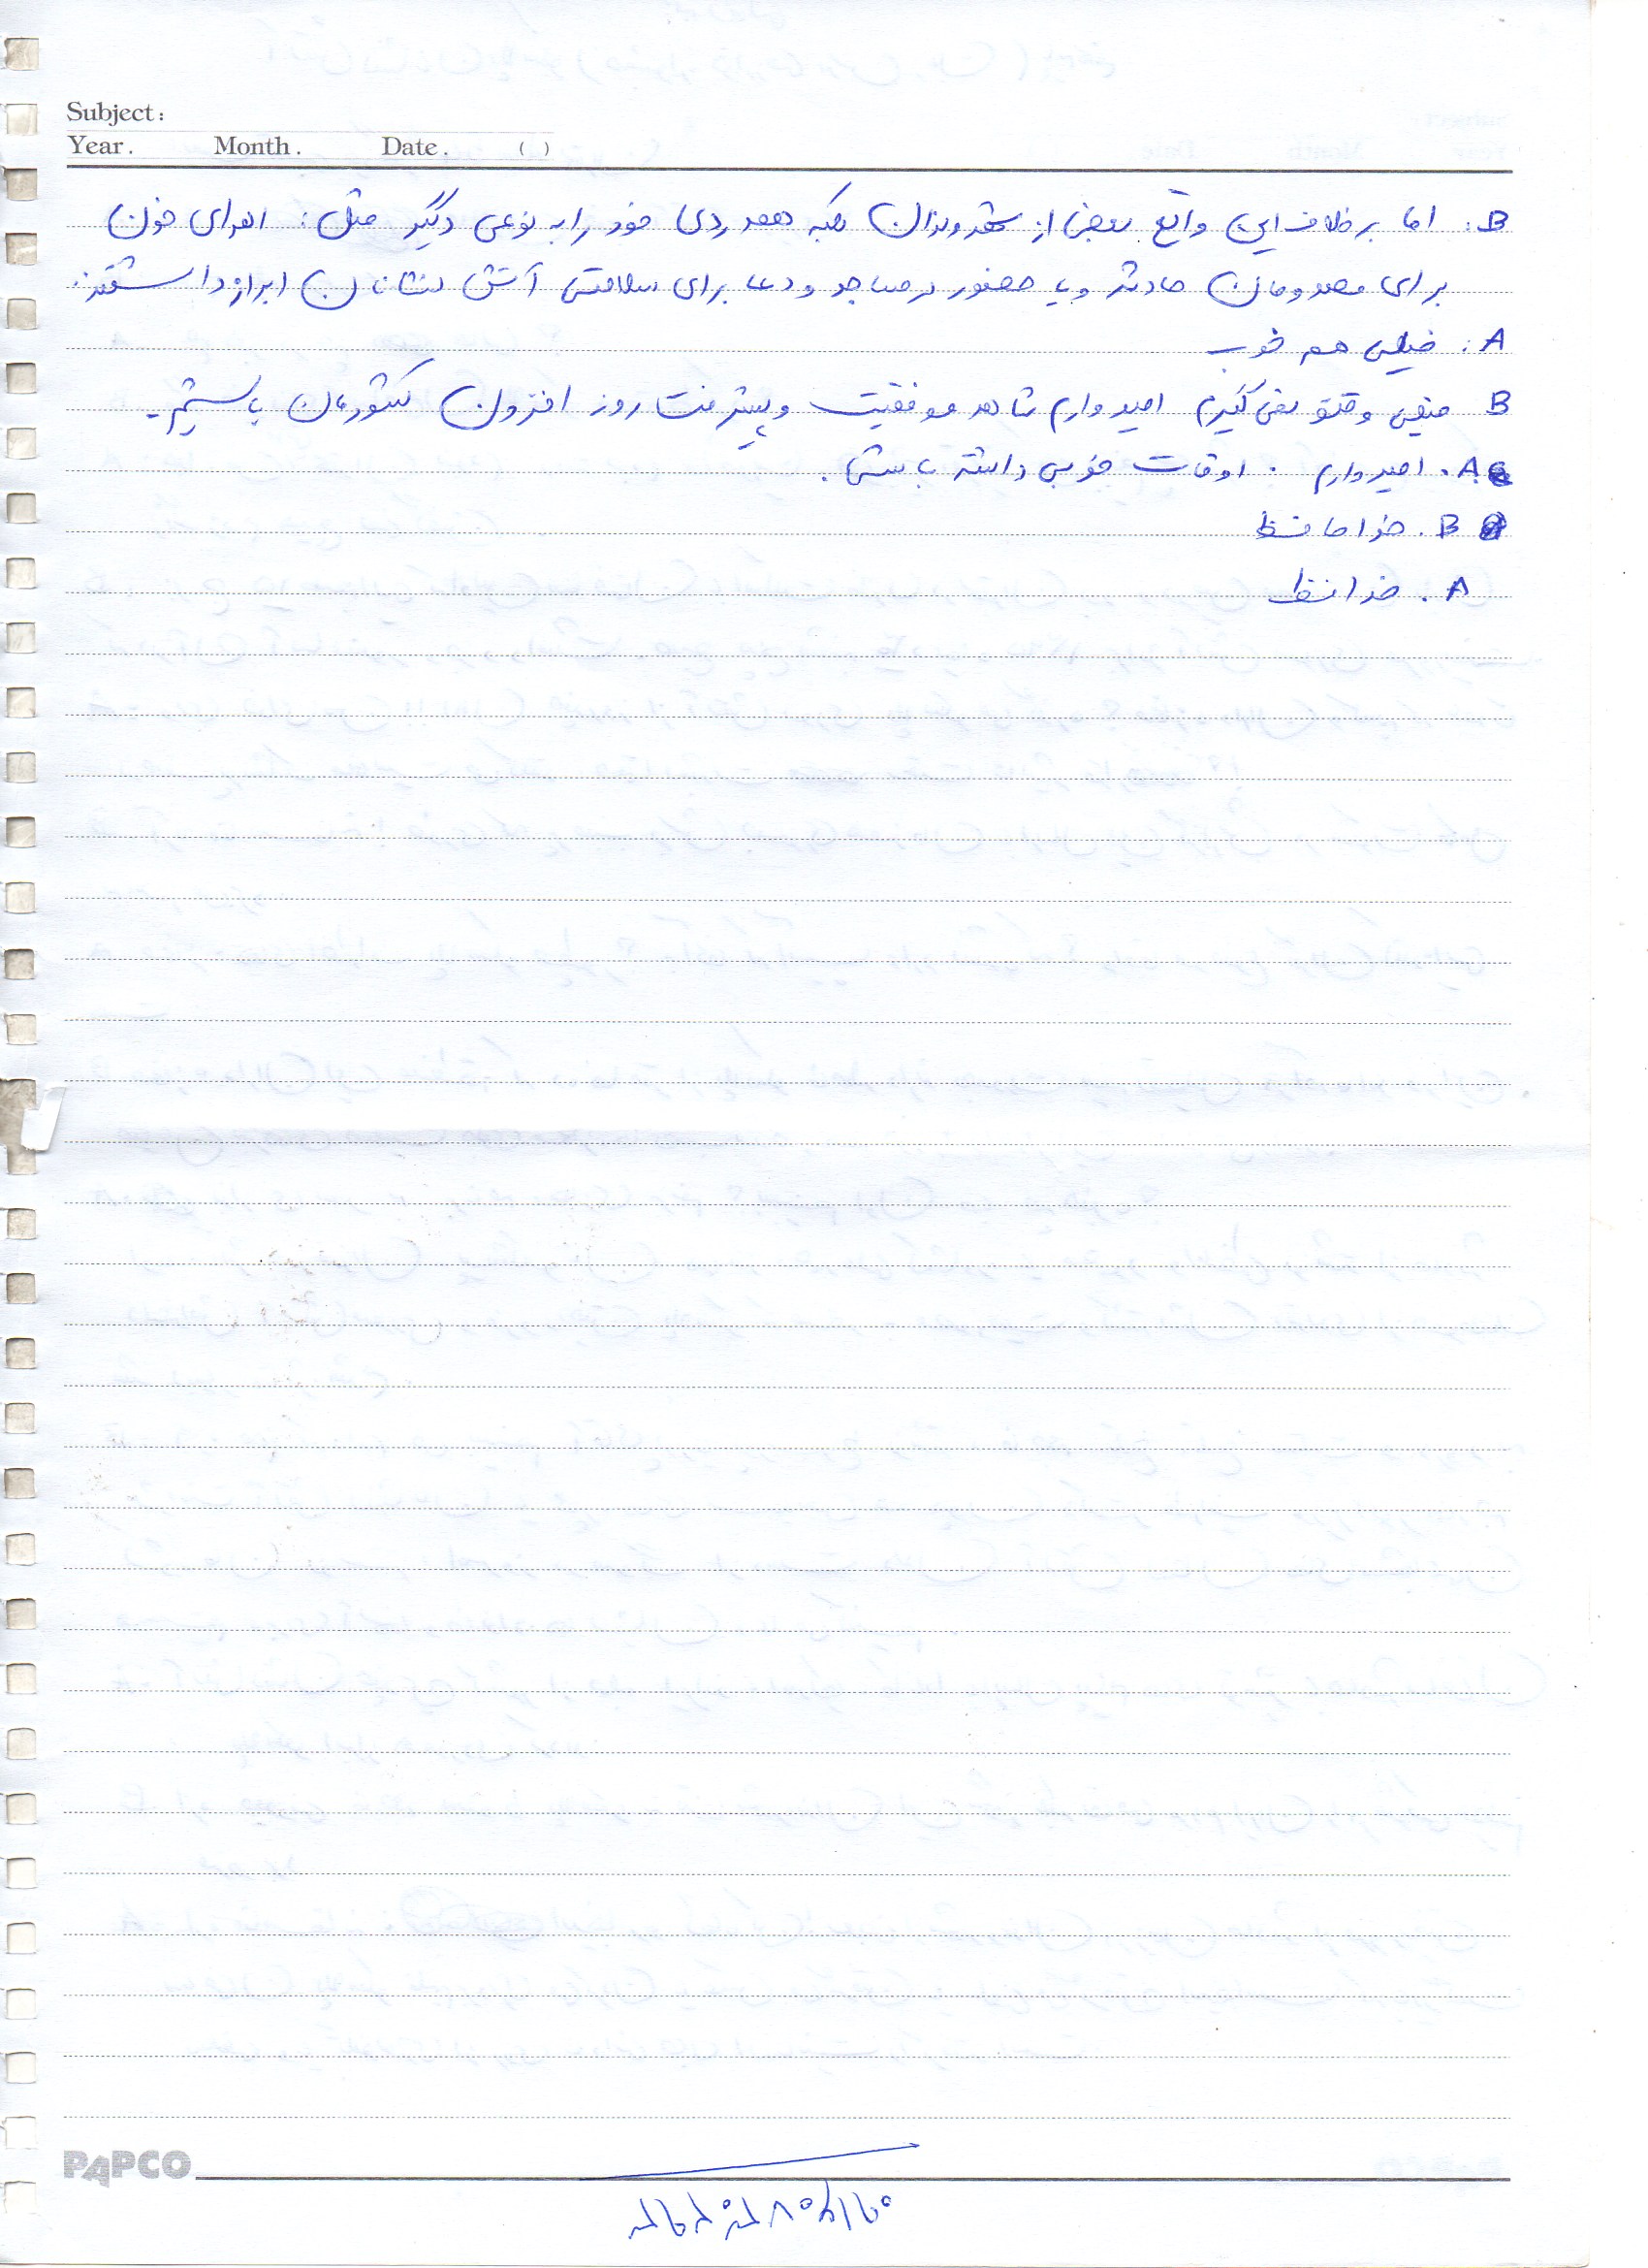 Subject:
Year. Month. Date. ( )
B: اما برخلاف این وقایع بعضی از شهروندان همدردی خود را به نوعی دیگر مثل: اهدای خون
برای مصدومان حادثه و یا حضور در مساجد و دعا برای سلامتی آتش نشانان ابراز داشتند.
A: خیلی هم خوب
B خیلی وقتتو نمی گیرم امیدوارم شاهد موفقیت و پیشرفت روز افزون کشورمان باشیم.
A. امیدوارم. اوقات خوبی داشته باشی.
B. خداحافظ
A. خدافظ
PAPCO